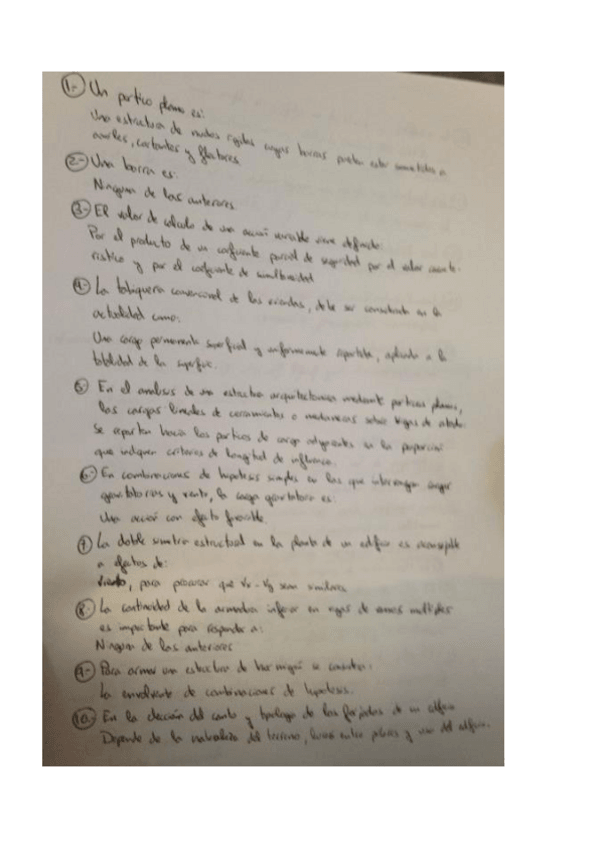 1.- Un pórtico plano es:
Una estructura de nudos rígidos cuyas barras pueden estar sometidas a
axiles, cortantes y flectores
2.- Una barra es:
Ninguna de las anteriores
3.- El valor de cálculo de una acción variable viene definido:
Por el producto de un coeficiente parcial de seguridad por el valor caracte-
rístico y por el coeficiente de simultaneidad
4.- La tabiquería convencional de las viviendas, debe ser considerada en la
actualidad como:
Una carga permanente superficial y uniformemente repartida, aplicada a la
totalidad de la superficie.
5.- En el análisis de una estructura arquitectónica mediante pórticos planos,
las cargas lineales de cerramientos o medianeras sobre vigas de atado:
Se reparten hacia los pórticos de carga adyacentes en la proporción
que indiquen criterios de longitud de influencia.
6.- En combinaciones de hipótesis simples en las que intervengan cargas
gravitatorias y viento, la carga gravitatoria es:
Una acción con efecto favorable.
7.- La doble simetría estructural en la planta de un edificio es aconsejable
a efectos de:
viento, para procurar que Vx - Vy sean similares
8.- La continuidad de la armadura inferior en vigas de vanos múltiples
es importante para responder a:
Ninguna de las anteriores
9.- Para armar una estructura de hormigón se considera:
La envolvente de combinaciones de hipótesis.
10.- En la elección del canto y tipología de los forjados de un edificio
Depende de la naturaleza del terreno, luces entre pilares y uso del edificio.